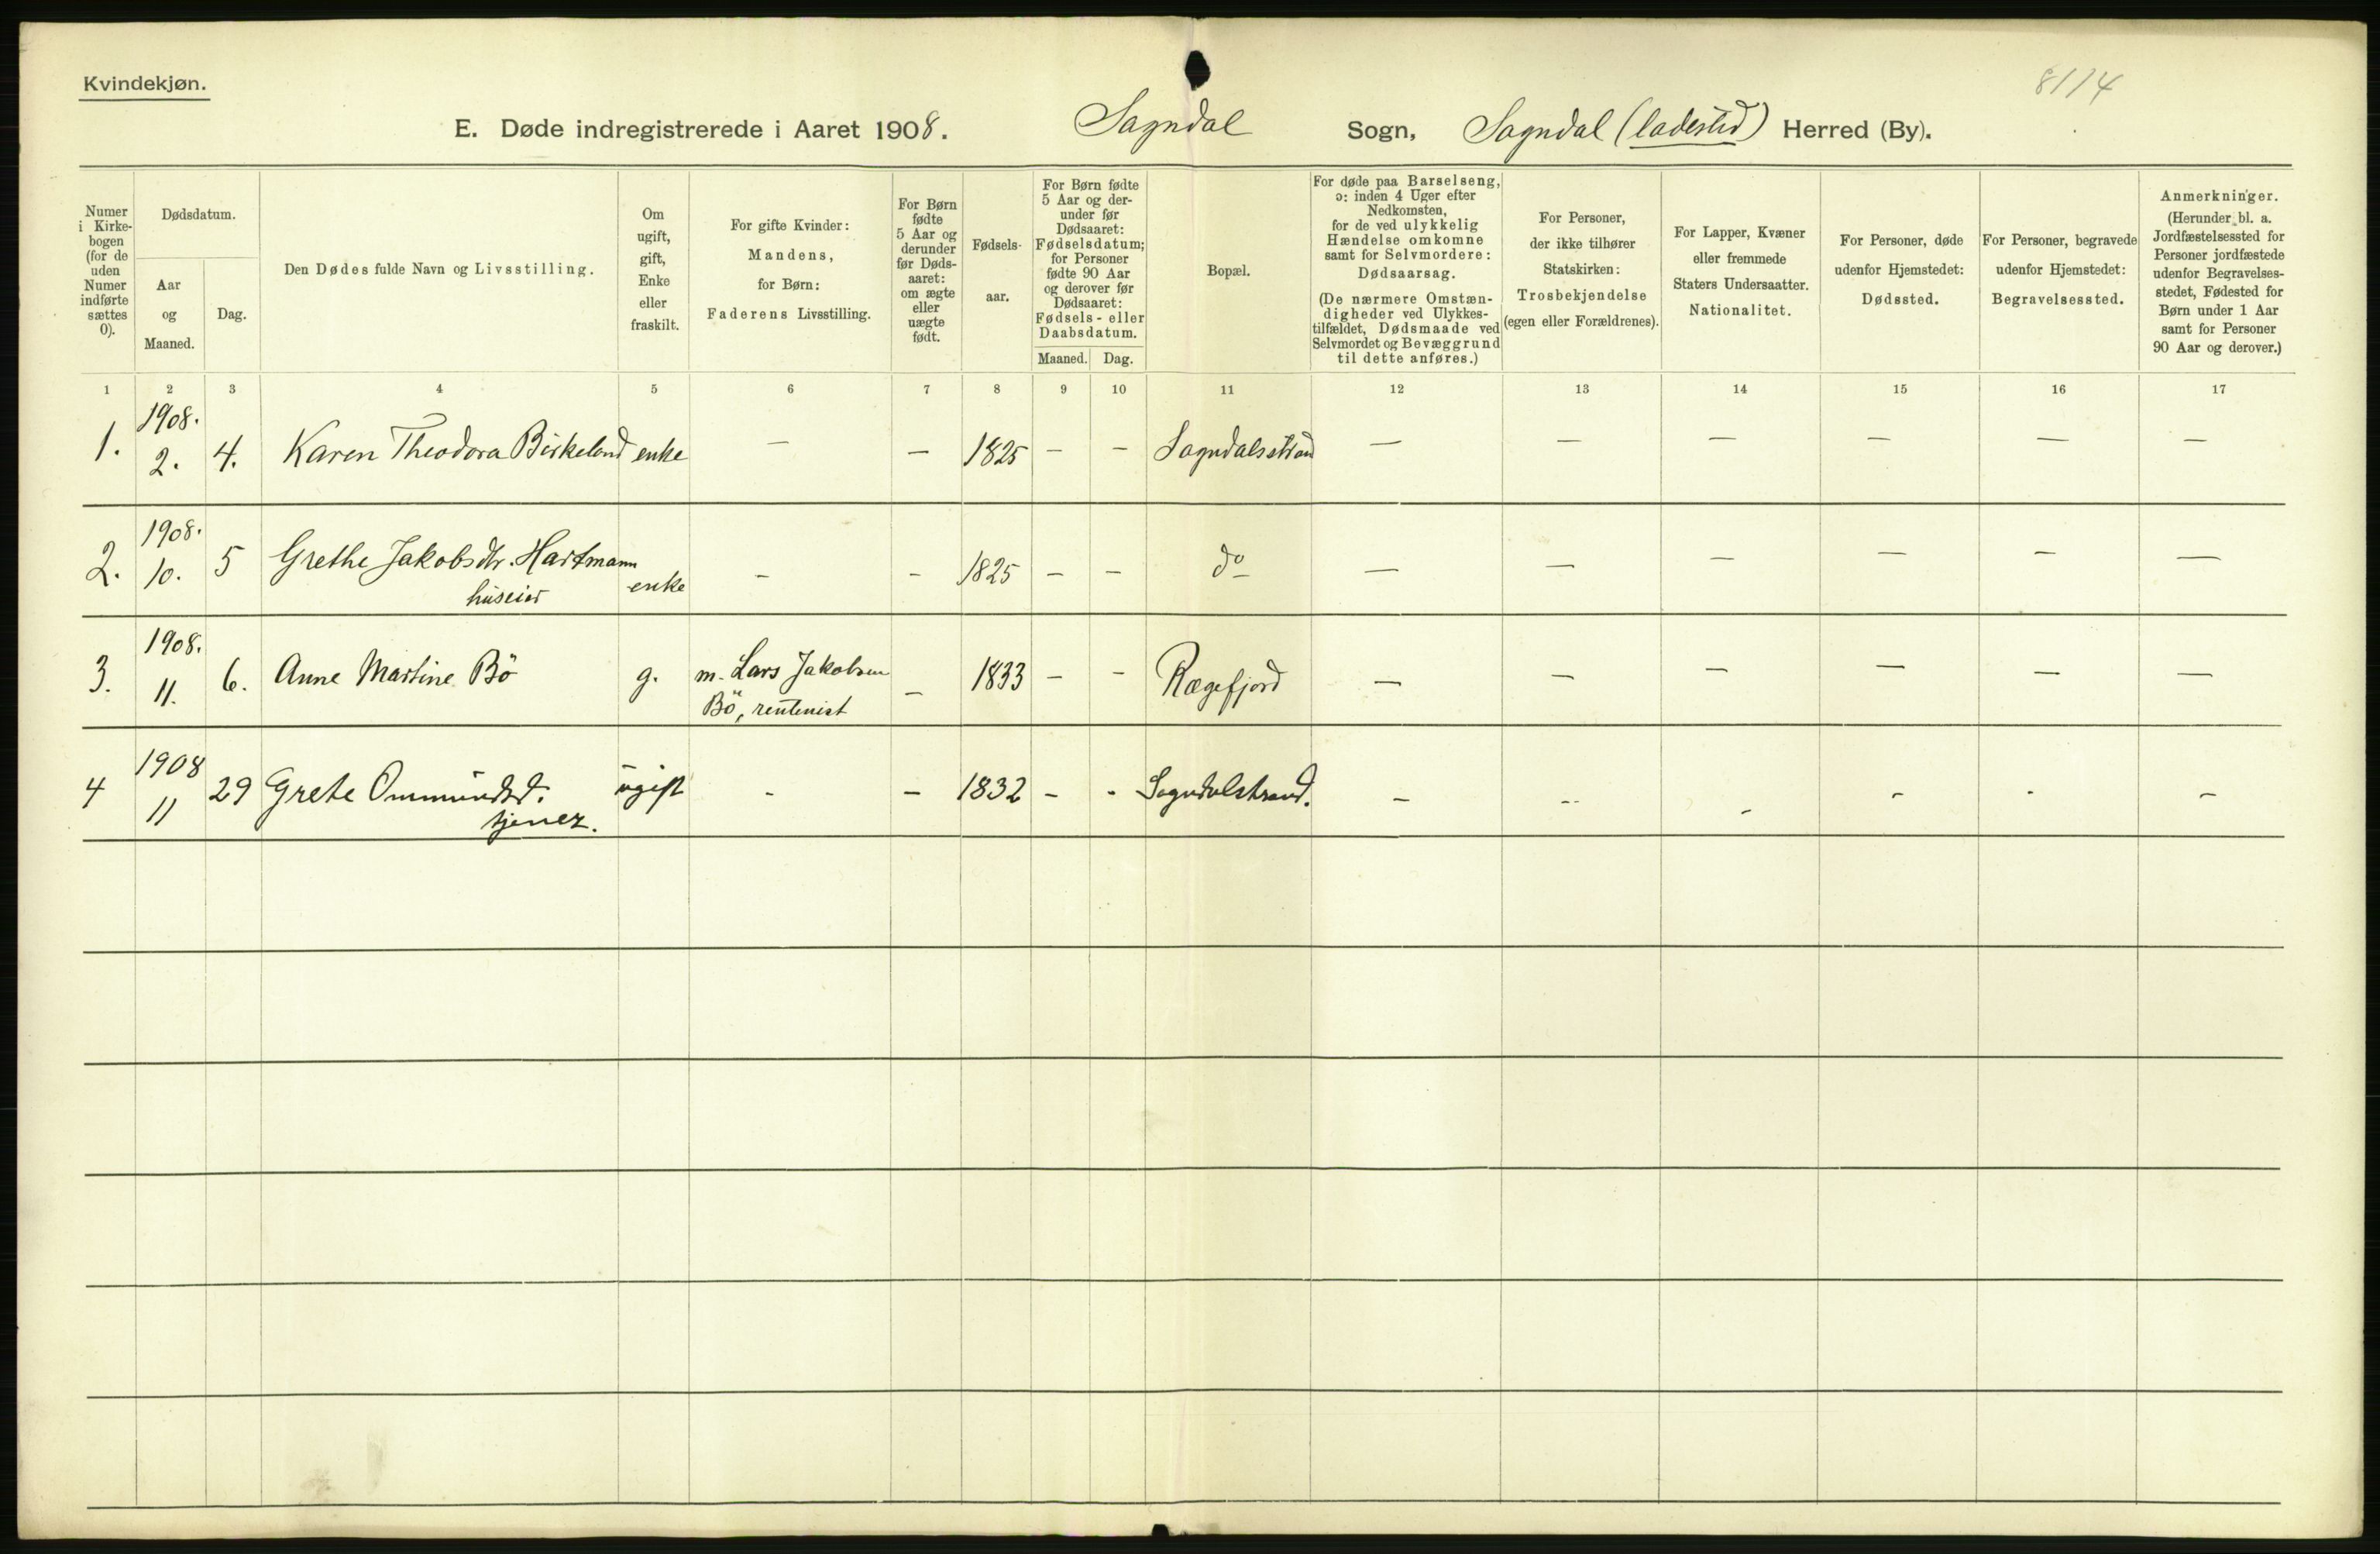 Kvindekjøn.
8114
E. Døde indregistrerede i Aaret 1908. Sogndal Sogn, Sogndal (ladested) Herred (By).
Numer i Kirke- bogen (for de uden Numer indførte sættes 0).
Dødsdatum.
Aar og Maaned.
Dag.
Den Dødes fulde Navn og Livsstilling.
Om ugift, gift, Enke eller fraskilt.
For gifte Kvinder: Mandens, for Børn: Faderens Livsstilling.
For Børn fødte 5 Aar og derunder før Døds- aaret: om ægte eller uægte født.
Fødsels- aar.
For Børn fødte 5 Aar og der- under før Dødsaaret: Fødselsdatum; for Personer fødte 90 Aar og derover før Dødsaaret: Fødsels- eller Daabsdatum.
Maaned. Dag.
Bopæl.
For døde paa Barselseng, ɔ: inden 4 Uger efter Nedkomsten, for de ved ulykkelig Hændelse omkomne samt for Selvmordere: Dødsaarsag. (De nærmere Omstæn- digheder ved Ulykkes- tilfældet, Dødsmaade ved Selvmordet og Bevæggrund til dette anføres.)
For Personer, der ikke tilhører Statskirken: Trosbekjendelse (egen eller Forældrenes).
For Lapper, Kvæner eller fremmede Staters Undersaatter. Nationalitet.
For Personer, døde udenfor Hjemstedet: Dødssted.
For Personer, begravede udenfor Hjemstedet: Begravelsessted.
Anmerkninger. (Herunder bl. a. Jordfæstelsessted for Personer jordfæstede udenfor Begravelses- stedet, Fødested for Børn under 1 Aar samt for Personer 90 Aar og derover.)
1 2 3 4 5 6 7 8 9 10 11 12 13 14 15 16 17
1908.
1. 2. 4. Karen Theodora Birkeland enke — — 1825 — — Sogndalsstrand — — — — — —
1908.
2. 10. 5 Grethe Jakobsdtr. Hartmann enke - - 1825 - - do — — — — — —
huseier
1908.
3. 11. 6. Anne Martine Bö g. m. Lars Jakobsen — 1833 — - Rægefjord — — — — — —
Bö, rentenist
1908
4 11 29 Grete Ommundsd. ugift - - 1832 - - Sogndalstrand. - - - - - -
tjener.